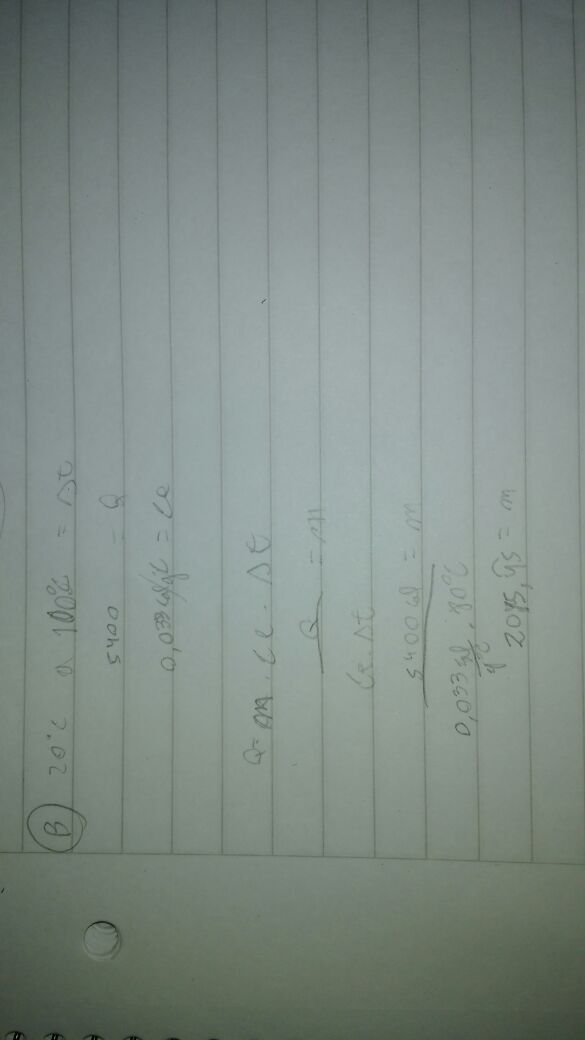 B 20°C a 100°C = Δt
5400 = Q
0,033 cal/g°C = Ce
Q = m . Ce . Δt
Q = m
Ce . Δt
5400 cal = m
0,033 cal/g°C . 80°C
= m